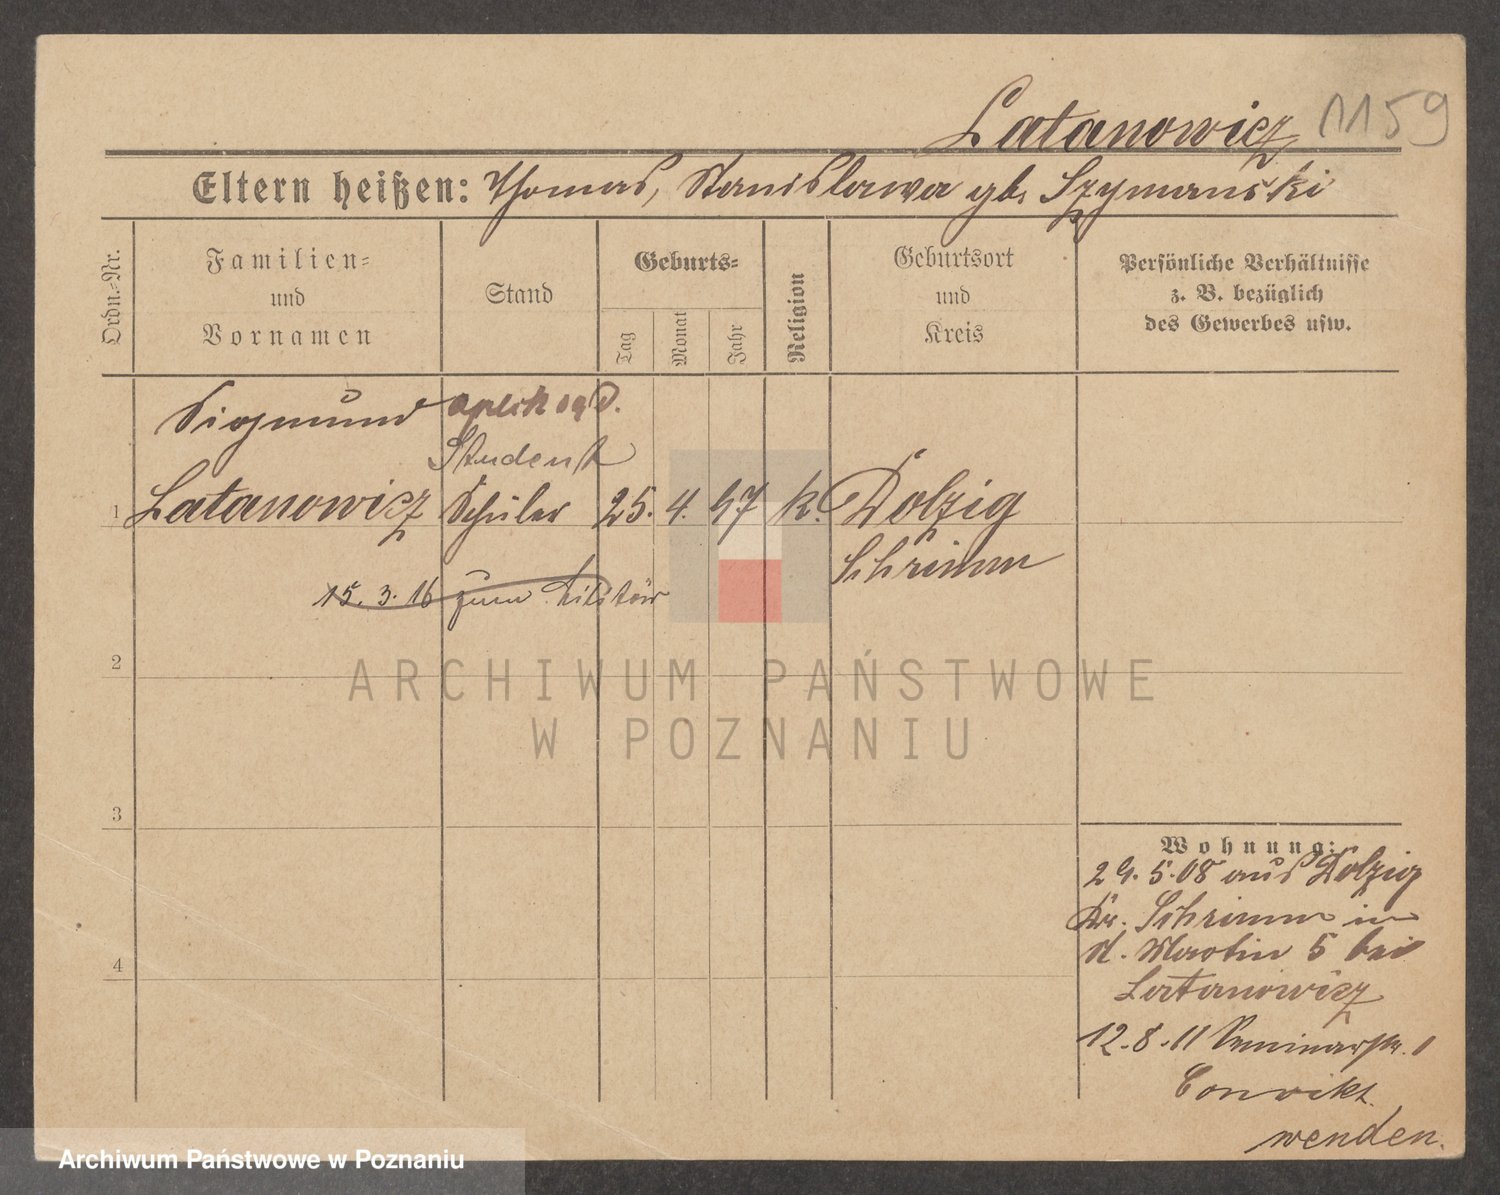 Latanowicz 1159
Eltern heißen: Thomas, Stanislawa gb. Szymanski
Ordn.-Nr.
Familien-
und
Vornamen
Stand
Geburts-
Tag
Monat
Jahr
Religion
Geburtsort
und
Kreis
Persönliche Verhältnisse
z. B. bezüglich
des Gewerbes usw.
Siegmund
Student
1 Latanowicz Schüler 25. 4. 97 k. Dolzig
Schrimm
15. 3. 16 zum Militär
2
3
4
Wohnung:
29. 5. 08 aus Dolzig
Kr. Schrimm in
St. Martin 5 bei
Latanowicz
12. 8. 11 Seminarstr. 1
Convikt.
wenden.
ARCHIWUM PAŃSTWOWE
W POZNANIU
Archiwum Państwowe w Poznaniu